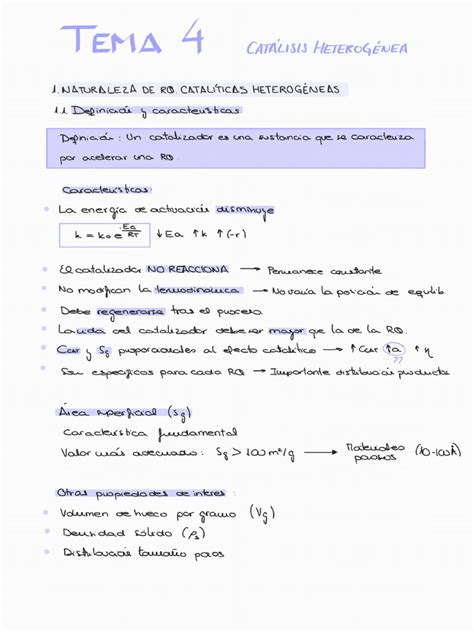 TEMA 4 CATÁLISIS HETEROGÉNEA
1. NATURALEZA DE RQ. CATALÍTICAS HETEROGÉNEAS
1.1. Definición y características
Definición: Un catalizador es una sustancia que se caracteriza
por acelerar una RQ.
Características
La energía de activación disminuye
k = k₀ e^(-Ea/RT) ↓Ea ↑k ↑(-r)
El catalizador NO REACCIONA → Permanece constante
No modifican la termodinámica → No varía la posición de equilib
Debe regenerarse tras el proceso
La vida del catalizador debe ser mayor que la de la RQ.
Ccat y Sg proporcionales al efecto catalítico → ↑Ccat ↑a ↑
??
Son específicos para cada RQ → Importante distribución productos
Área superficial (Sg)
Característica fundamental
Valor más adecuado: Sg > 100 m²/g → Materiales porosos (10-100Å)
Otras propiedades de interés:
Volumen de hueco por gramo (Vg)
Densidad sólido (ρs)
Distribución tamaño poros